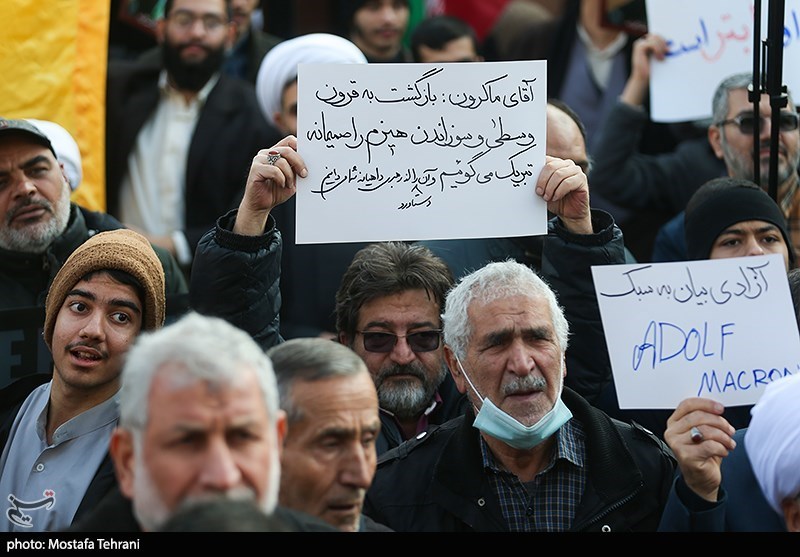 آقای ماکرون: بازگشت به قرون
وسطی و سوزاندن هیزم را صمیمانه
تبریک می‌گوئیم و آن را از رهبری داهیانه شما می‌دانیم
دستاورد
ابتر است
آزادی بیان به سبک
ADOLF
MACRON
تسنیم
photo: Mostafa Tehrani